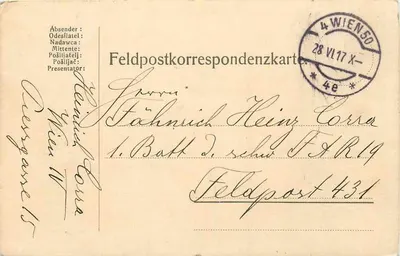 Absender:
Odesílatel:
Nadawca:
Mittente:
Pošiljatelj:
Pošiljač:
Presentator:
Feldpostkorrespondenzkarte
4 WIEN 50
28 VI. 17 X—
* 4e *
Herrn
Fähnrich Heinz Corra
1. Batt d. schw F A R 19
Feldpost 431
Heinrich Corra
Wien IV
15